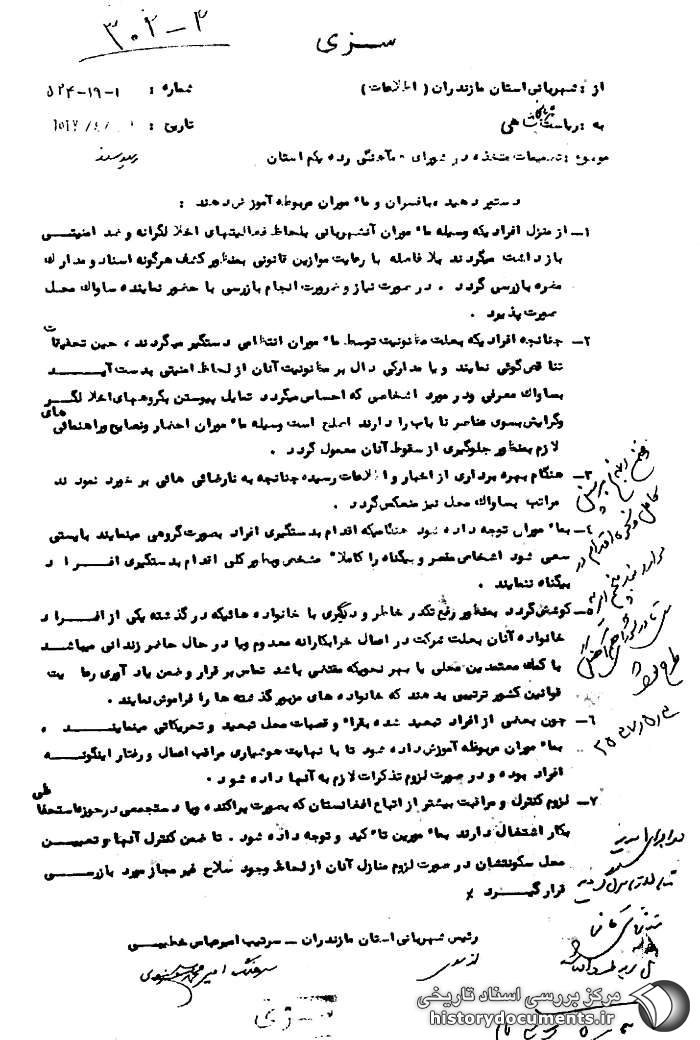 ۳۰۲-۳
سـری
از : شهربانی استان مازندران ( اطلاعات )
شماره : ۱-۱۹-۵۲۴
به : ریاست شهربانی شاهی
تاریخ :
موضوع : تصمیمات متخذه در شورای هماهنگی رده یکم استان
دستور دهید بافسران و مامورین مربوطه آموزش دهند :
۱- از منزل افراد یکه وسیله ماموران آنشهربانی بلحاظ فعالیتهای اخلالگرانه و ضد امنیتـی
بازداشت میگردند بلا فاصله با رعایت موازین قانونی بمنظور کشف هرگونه اسناد و مدارک
مضره بازرسی گردد . در صورت نیاز و ضرورت انجام بازرسی با حضور نماینده ساواک محـل
صورت پذیرد .
۲- چنانچه افراد یکه بعلت مظنونیت توسط ماموران انتظامی دستگیر میگردند ، حین تحقیقات
تناقض گوئی نمایند و یا مدارکی دال بر مظنونیت آنان از لحاظ امنیتی بدست آیـــد
بساواک معرفی ودر مورد اشخاصی که احساس میگردد تمایل بپیوستن بگروههای اخلا لگـر
وگرایش بسوی عناصر ناباب را دارند اصلح است وسیله ماموران احضار ونصایح وراهنمائی های
لازم بمنظور جلوگیری از سقوط آنان معمول گردد .
۳- هنگام بهره برداری از اخبار و اطلاعات رسیده چنانچه به نارضائی هائی بر خورد نمودند
مراتب بساواک محل نیز منعکس گردد .
۴- بماموران توجه داده شود هنگامیکه اقدام بدستگیری افراد بصورت گروهی مینمایند بایستی
سعی شود اشخاص مقصر و بیگناه را کاملا مشخص وبطور کلی اقدام بدستگیری افـــراد
بیگناه ننمایند .
۵- کوشش گردد بمنظور رفع تکدر خاطر و دلگیری با خانواده هائیکه در گذشته یکی از افـراد
خانواده آنان بعلت شرکت در اعمال خرابکارانه معدوم ویا در حال حاضر زندانی میباشد
با کمک معتمدین محلی یا بهر نحویکه مقتضی باشد تماس بر قرار و ضمن یاد آوری رعایت
قوانین کشور ترتیبی بدهند که خانواده های مزبور گذشته ها را فراموش نمایند .
۶- چون بعضی از افراد تبعید شده بقراء و قصبات محل تبعید و تحریکاتی مینماینـــد .
بماموران مربوطه آموزش داده شود تا با نهایت هوشیاری مراقب اعمال و رفتار اینگونــه
افراد بوده و در صورت لزوم تذکرات لازم به آنها داده شود .
۷- لزوم کنترل و مراقبت بیشتر از اتباع افغانستان که بصورت پراکنده ویا دستجمعی درحوزه استحفاظی
بکار اشتغال دارند بمامورین تاکید و توجه داده شود . تا ضمن کنترل آنها و تعییـن
محل سکونتشان در صورت لزوم منازل آنان از لحاظ وجود سلاح غیر مجاز مورد بازرسـی
قرار گیـــرد ٪
رئیس شهربانی استان مازندران – سرتیپ امیرعباس خطیبـی
از سوی
سرهنگ
سـری
مرکز بررسی اسناد تاریخی
historydocuments.ir